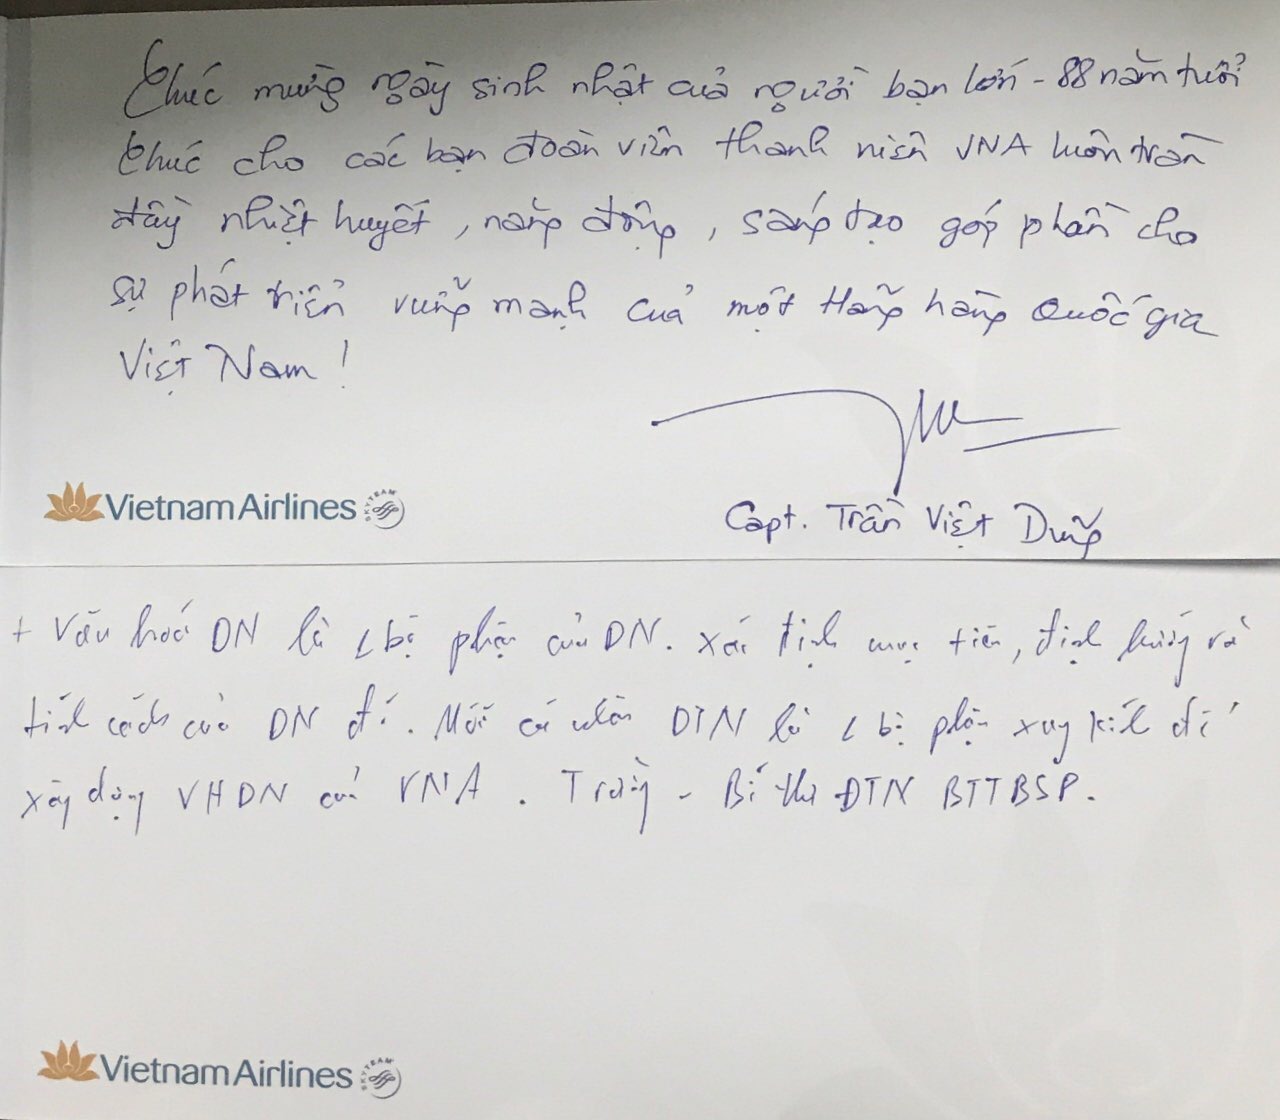 Chúc mừng ngày sinh nhật của người bạn lớn - 88 năm tuổi
Chúc cho các bạn đoàn viên thanh niên VNA luôn tràn
đầy nhiệt huyết, năng động, sáng tạo góp phần cho
sự phát triển vững mạnh của một Hãng hàng Quốc gia
Việt Nam!
Vietnam Airlines SKYTEAM
Capt. Trần Việt Dũng
+ Văn hoá DN là 1 bộ phận của DN. xác định mục tiêu, định hướng và
tính cách của DN đó. Mỗi cá nhân DTN là 1 bộ phận xung kích để
xây dựng VHDN của VNA. - Bí thư ĐTN BTTBSP.
Vietnam Airlines SKYTEAM